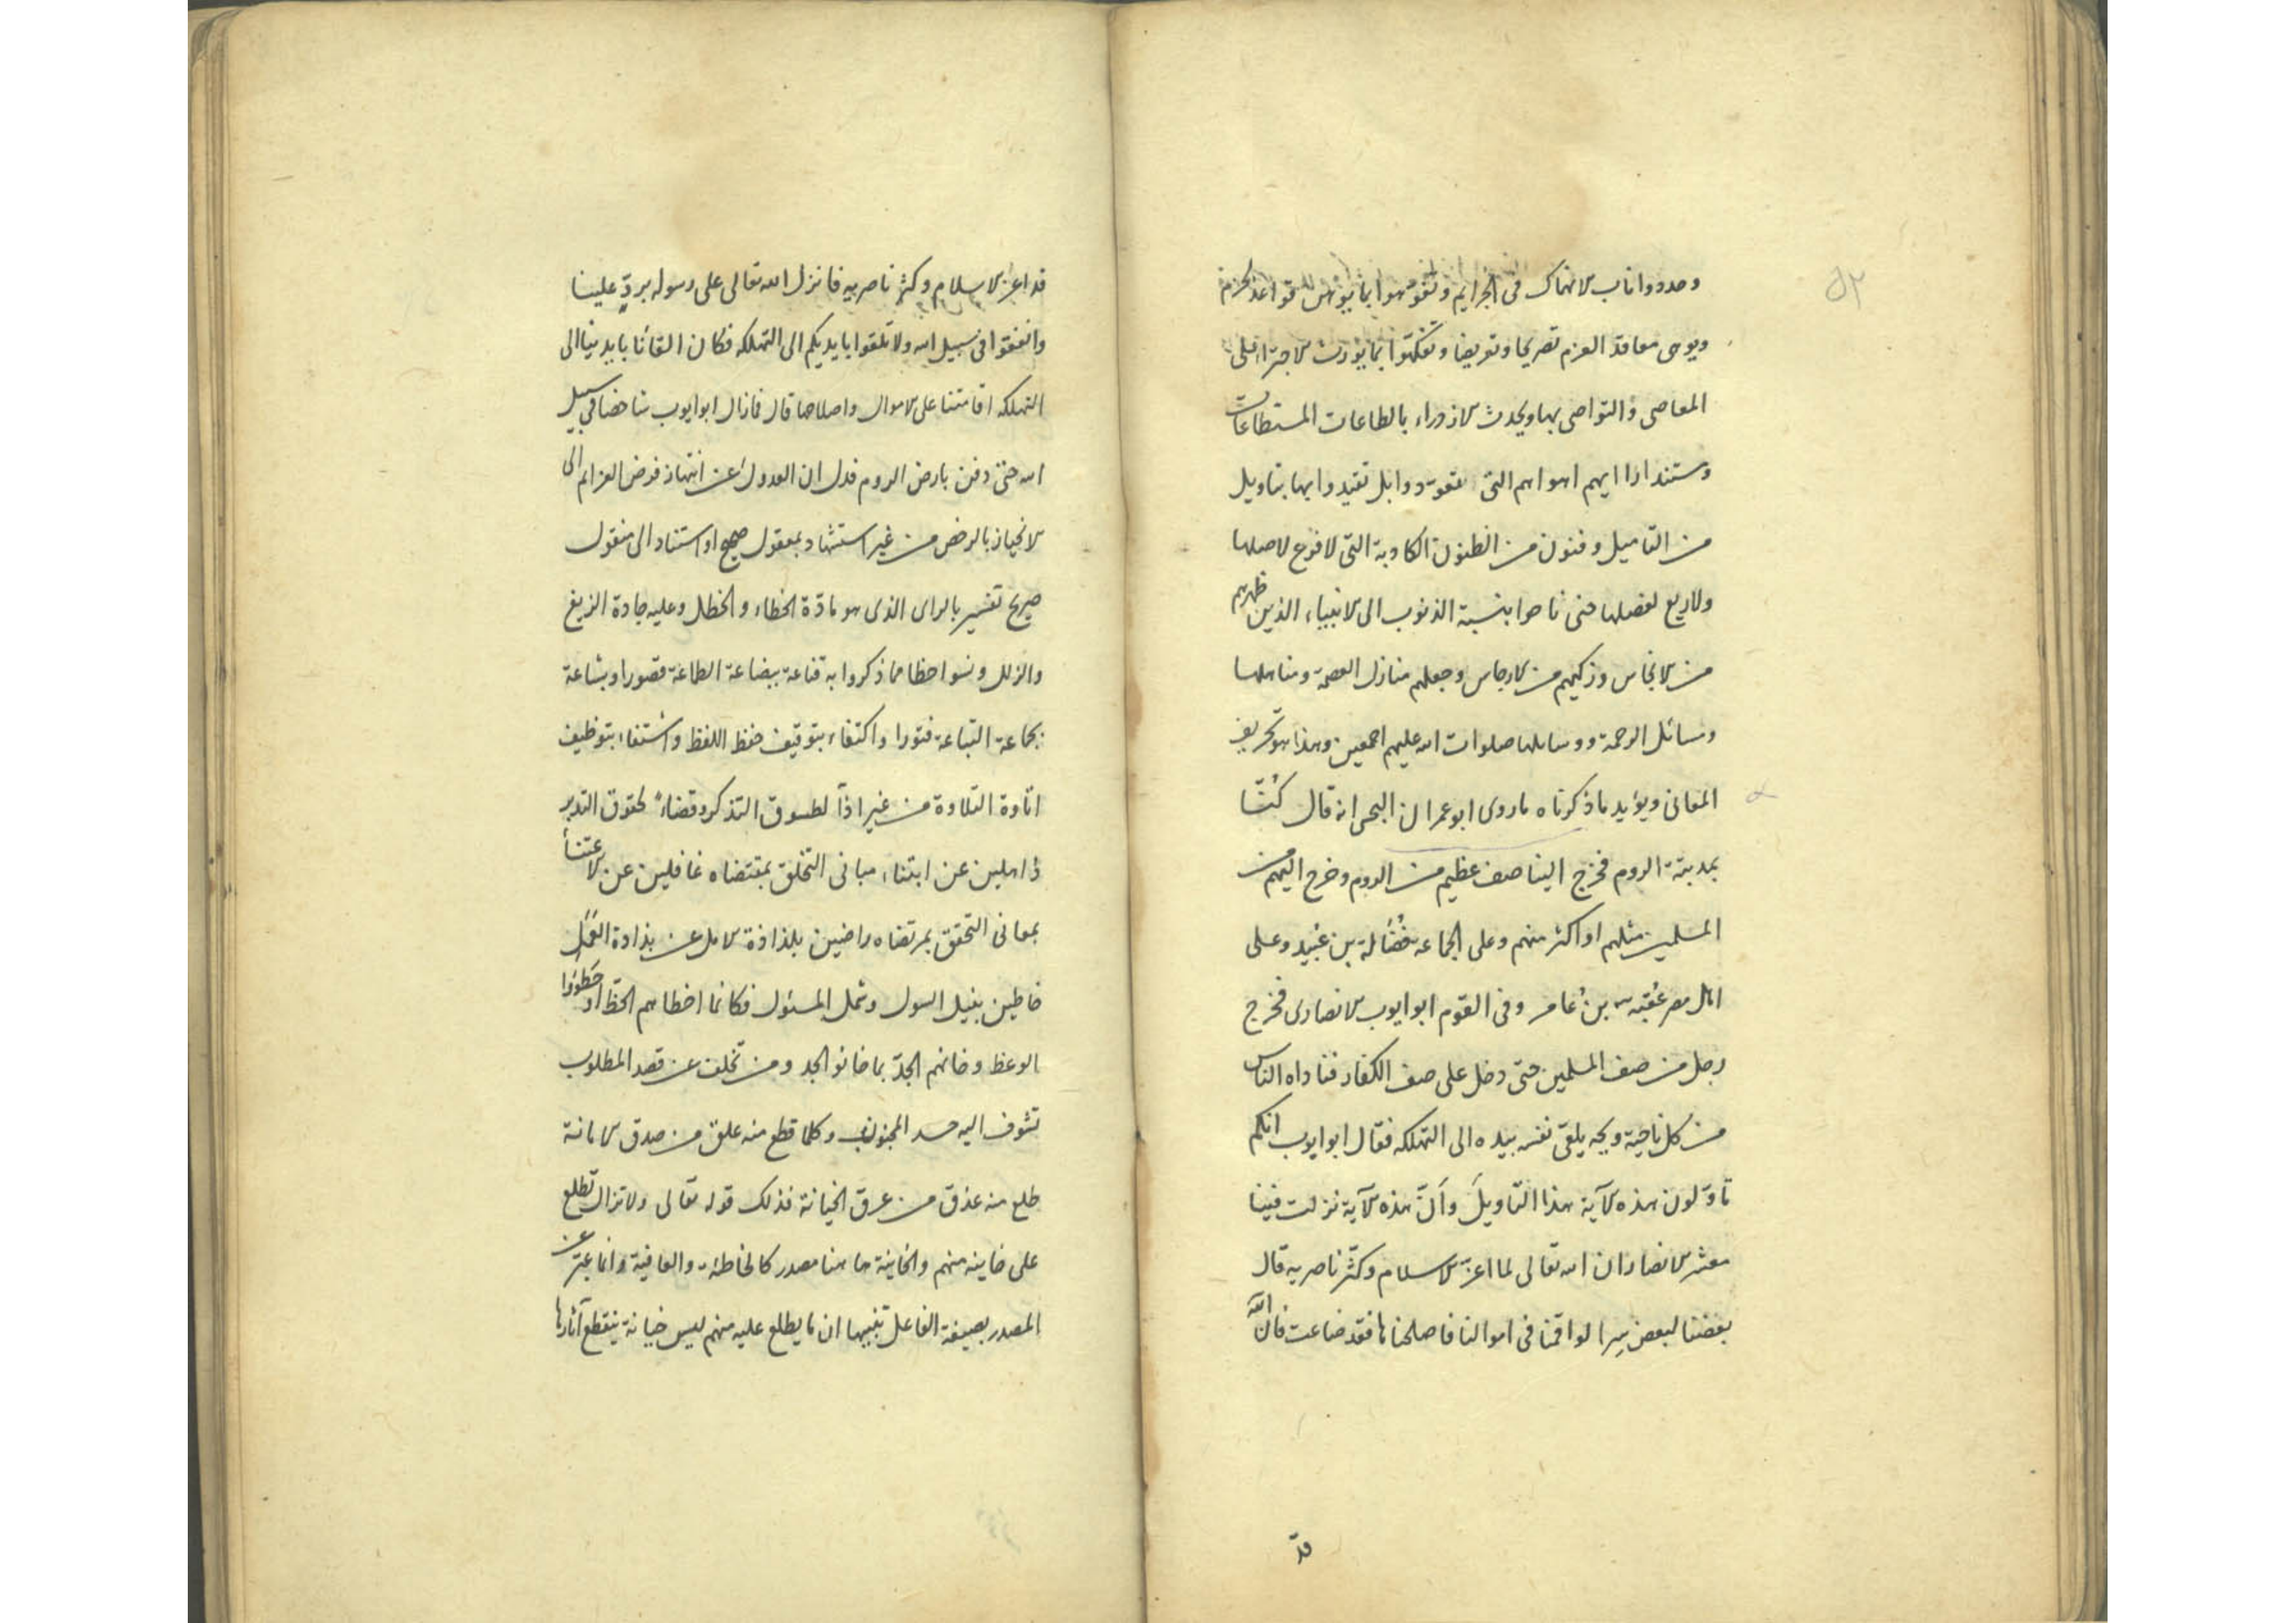 ٥٢
وحددوا ناب الانهماك فى الجرايم وتفوهوا بما يوهن قواعد الحزم
ويوهى معاقد العزم تصريحا وتعريضا وتفكهوا بما يورث الاجتراء على
المعاصى والتواصى بها ويحدث الازدراء بالطاعات المستطاعات
وستندا اراايهم اهوائهم التى تعودوا بل تقيدوا بها بتاويل
من التاميل وفنون من الظنون الكاذبة التى لا فرع لاصلها
ولا ريع لفضلها حتى ناحوا بنسبة الذنوب الى الانبياء الذين طهرهم
من الانجاس وزكيهم من الارجاس وجعلهم منازل العصمة ومناهلها
ومسائل الرحمة ووسايلها صلوات الله عليهم اجمعين وهذا هو تحريف
المعانى ويؤيد ما ذكرناه ما روى ابو عمران البحى انه قال كنّا
بمدينة الروم فخرج الينا صف عظيم من الروم وخرج اليهم من
المسلمين مثلهم او اكثر منهم وعلى الجماعه فضالة بن عبيد وعلى
اهل مصر عقبه بن عامر وفى القوم ابو ايوب الانصارى فخرج
رجل من صف المسلمين حتى دخل على صف الكفار فناداه الناس
من كل ناحية ويحه يلقى نفسه بيده الى التهلكه فقال ابو ايوب انكم
تاوّلون هذه الآية هذا التاويل وانّ هذه الآية نزلت فينا
معشر الانصار ان الله تعالى لما اعزّ الاسلام وكثّر ناصريه قال
بعضنا لبعض سرا لو اقمنا فى اموالنا فاصلحناها فقد ضاعت فان الله
قد
قد اعز الاسلام وكثر ناصريه فانزل الله تعالى على رسوله بردّ علينا
وانفقوا فى سبيل الله ولا تلقوا بايديكم الى التهلكه فكان القائنا بايدينا الى
التهلكه اقامتنا على الاموال واصلاحها قال فما زال ابو ايوب شاخصا فى سبيل
الله حتى دفن بارض الروم فدل ان العدول عن انتهاز فرض العزايم الى
الانحياز بالرخص من غير استشهاد بمعقول صحيح او استناد الى منقول
صريح تفسير بالراى الذى هو مادّة الخطاء والخطل وعليه جادة الزيغ
والزلل ونسوا حظا مما ذكروا به قناعة ببضاعة الطاعة قصورا وبشاعة
بجماعة التباعة فتورا واكتفاء بتوقيف حفظ اللفظ واشتفاء بتوظيف
اتاوة التلاوة من غير اذآ لطسوق التذكر وقضاءً لحقوق التدبر
ذاهلين عن ابتناء مبانى التخلق بمقتضاه غافلين عن الاعتنآ
بمعانى التحقق بمرتضاه راضين بلذاذة الامل عن بذاذة العمل
خاطين بنيل السول وشمل المسئول فكانما اخطاهم الحظ او خطؤا
الوعظ وخانهم الجدّ بما خانو الجد ومن تخلف عن قصد المطلوب
تشوف اليه حسد المحبوب وكلما قطع منه علق من صدق الامانة
طلع منه عذق من عرق الخيانة فذلك قوله تعالى ولا تزال تطلع
على خاينه منهم والخاينة هاهنا مصدر كالخاطئة والعافية وانما عبّر عن
المصدر بصيغة الفاعل تنبيها ان ما يطلع عليه منهم ليس خيانة ينقطع آثارها